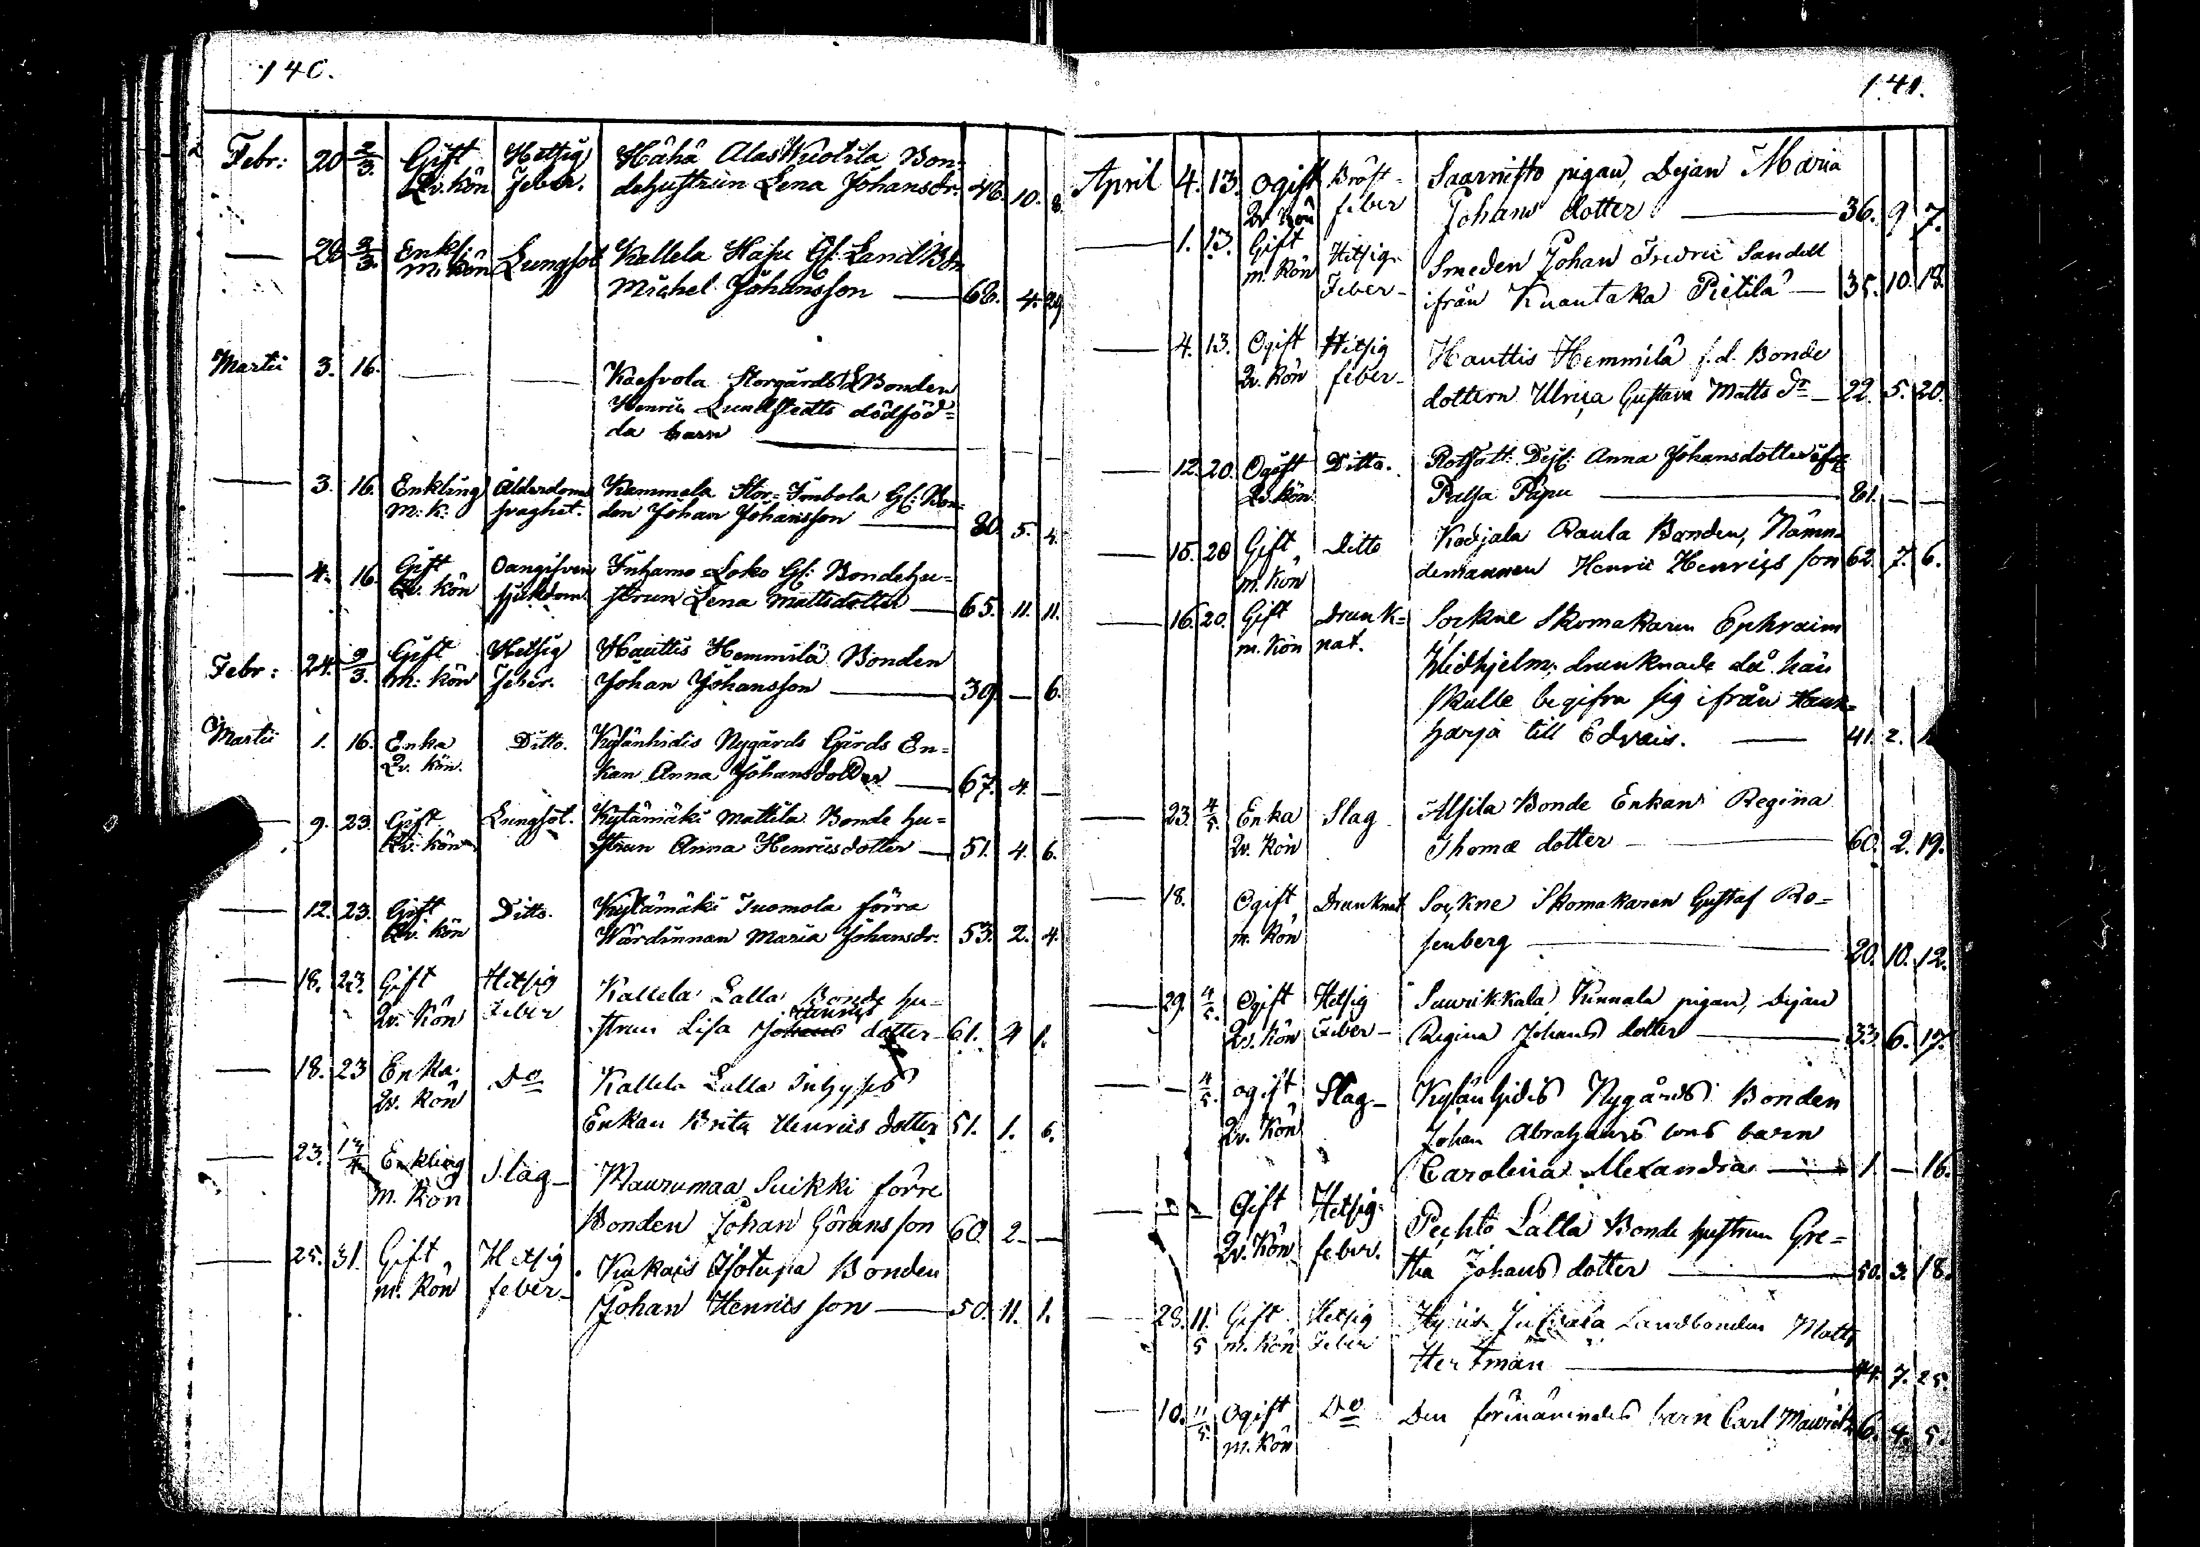 140.
Febr: 20 2/3. Gift Hetsig Hähä Alas Kiolila Bon-
Qv. kön feber. dehustrun Lena Johansdr. 46. 10. 8.
— 28 2/3. Enkl: Lungsot Kallela Hapu Gl: Land Bon
M: kön Michel Johansson — 68. 4. 29
Martii 3. 16. — — Storgårds Bonden
Henric Lundstedts dödföd=
da barn —
— 3. 16. Enkling Ålderdoms Kammela Stor= Imbola Gl: Bon=
M: k: svaghet. den Johan Johansson — 80. 5. 4.
— 4. 16. Gift Oangifven Inhamo Loko Gl: Bondehu=
Qv. kön sjukdom. strun Lena Mattsdotter — 65. 11. 11.
Febr: 24. 9/3. Gift Hetsig Hauttis Hemmilä Bonden
M: kön feber. Johan Johansson — 39. — 6.
Martii 1. 16. Enka Ditto. Kylänhidis Nygårds Gårds En=
Qv. kön. kan Anna Johansdotter — 67. 4. —
— 9. 23. Gift Lungsot. Kytämäki Mattila Bonde hu=
Qv. kön strun Anna Henricsdotter — 51. 4. 6.
— 12. 23. Gift Ditto. Kytämäki Tuomola förra
Qv. kön Wärdinnan Maria Johansdr. 53. 2. 4.
— 18. 23. Gift Hetsig Kallela Lalla Bonde hu=
Qv. Kön Feber strun Lisa Johans dotter 61. 4 1.
— 18. 23 Enka Do Kallela Lalla Inhyses
Qv. Kön Enkan Brita Henrics dotter 51. 1. 6.
— 23. Enkling Slag — Maurumaa Suikki förre
M. Kön Bonden Johan Göransson 60. 2. —
— 25. 31. Gift Hetsig Kukais Isotupa Bonden
m. Kön feber — Johan Henrics son — 50. 11. 1.
141.
April 4. 13. Ogift Bröst- Saarnisto pigan, Dejan Maria
Qv. Kön feber Johans dotter — 36. 9 7.
— 1. 13. Gift Hetsig- Smeden Johan Fredric Sandell
m. Kön Feber — ifrån Knautaka Pietilä — 35. 10. 13.
— 4. 13. Ogift Hetsig Hauttis Hemmilä f.d. Bonde
Qv. Kön feber — dottern Ulrica Gustava Matts Dr — 22. 5. 20.
— 12. 20. Ogift Ditto. Rotfatt: Dej: Anna Johansdotter
Qv. Kön Palsa — 81. — —
— 15. 20 Gift Ditto Kodjala Raula Bonden, Nämn-
m. Kön demannen Henric Henrics son 62. 7. 6.
— 16. 20. Gift Drunk= Sockne Skomakaren Ephraim
m. Kön nat. Widhjelm, drunknade då han
skulle begifva sig ifrån Hauk=
harja till Edvais. — 41. 2.
— 23. 4/5. Enka Slag Alsila Bonde Enkan Regina
Qv. Kön Thomæ dotter — 60. 2. 19.
— 18. Ogift Drunknat Sockne Skomakaren Gustaf Ro=
m. Kön senberg — 20. 10. 12.
— 29. 4/5. Ogift Hetsig Suurikkala Kinnala pigan, Dejan
Qv. Kön Feber — Regina Johans dotter — 33. 6. 17.
— — 4/5. ogift Slag — Kylänhidis Nygårds Bonden
Qv. Kön Johan Abrahams sons barn
Carolina Alexandra — 1. — 16.
— Gift Hetsig- Pechto Lalla Bonde hustrun Gre=
Qv. Kön feber. tha Johans dotter — 50. 3. 18.
— 28. 11/5 Gift Hetsig Landbonden Matts
m. Kön Feber Hertman — 44. 7. 25.
— 10. 11/5. Ogift Do Den förenämndes barn Carl Mauritz 6. 4. 5.
m. Kön